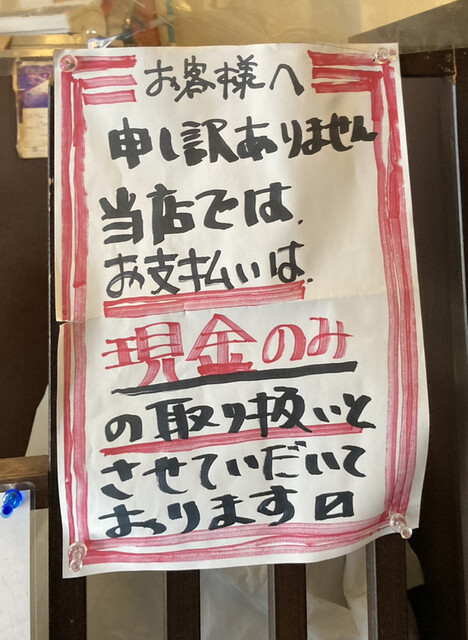 お客様へ
申し訳ありません
当店では、
お支払いは、
現金のみ
の取り扱いと
させていだいて
おります